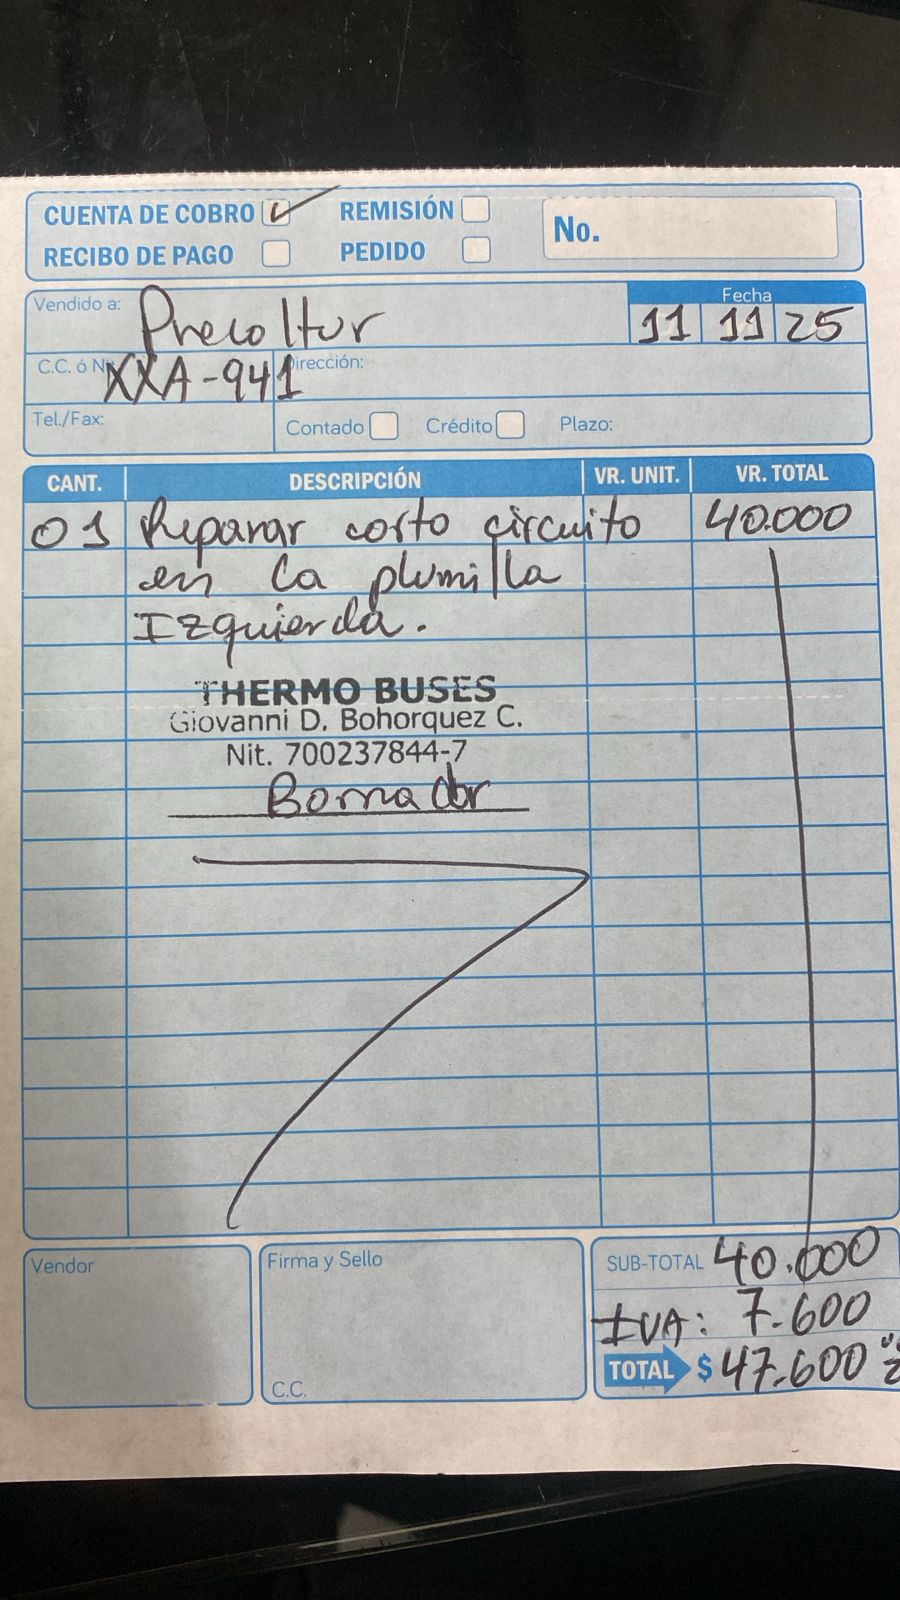 CUENTA DE COBRO REMISIÓN No.
RECIBO DE PAGO PEDIDO
Vendido a: Precoltur Fecha
11 11 25
C.C. ó Nit XXA-941 Dirección:
Tel./Fax: Contado Crédito Plazo:
CANT. DESCRIPCIÓN VR. UNIT. VR. TOTAL
01 Reparar corto circuito 40.000
en la plumilla
Izquierda.
THERMO BUSES
Giovanni D. Bohorquez C.
Nit. 700237844-7
Borrador
Vendor Firma y Sello SUB-TOTAL 40.000
IVA: 7.600
C.C. TOTAL $ 47.600